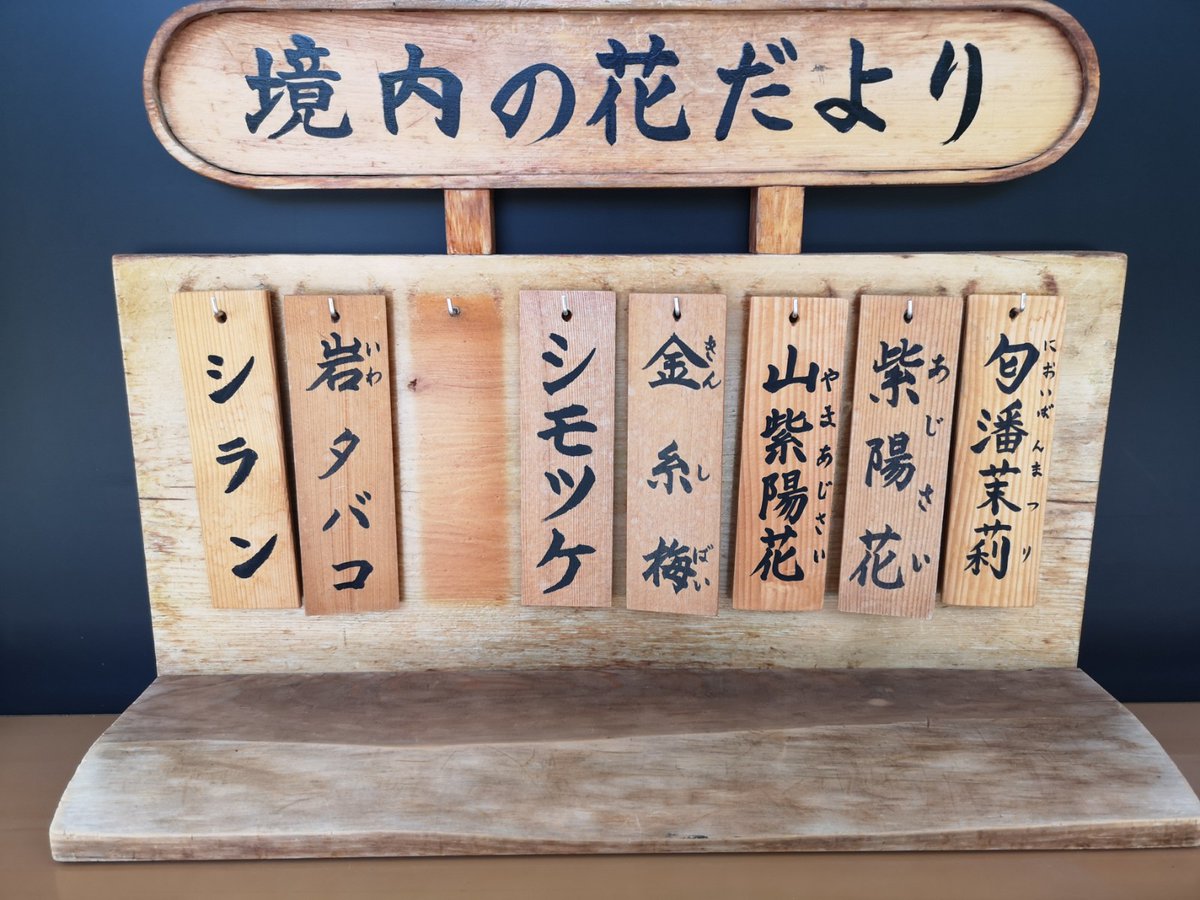 境内の花だより
匂潘茉莉
においばんまつり
紫陽花
あじさい
山紫陽花
やまあじさい
金糸梅
きんしばい
シモツケ
岩タバコ
いわ
シラン